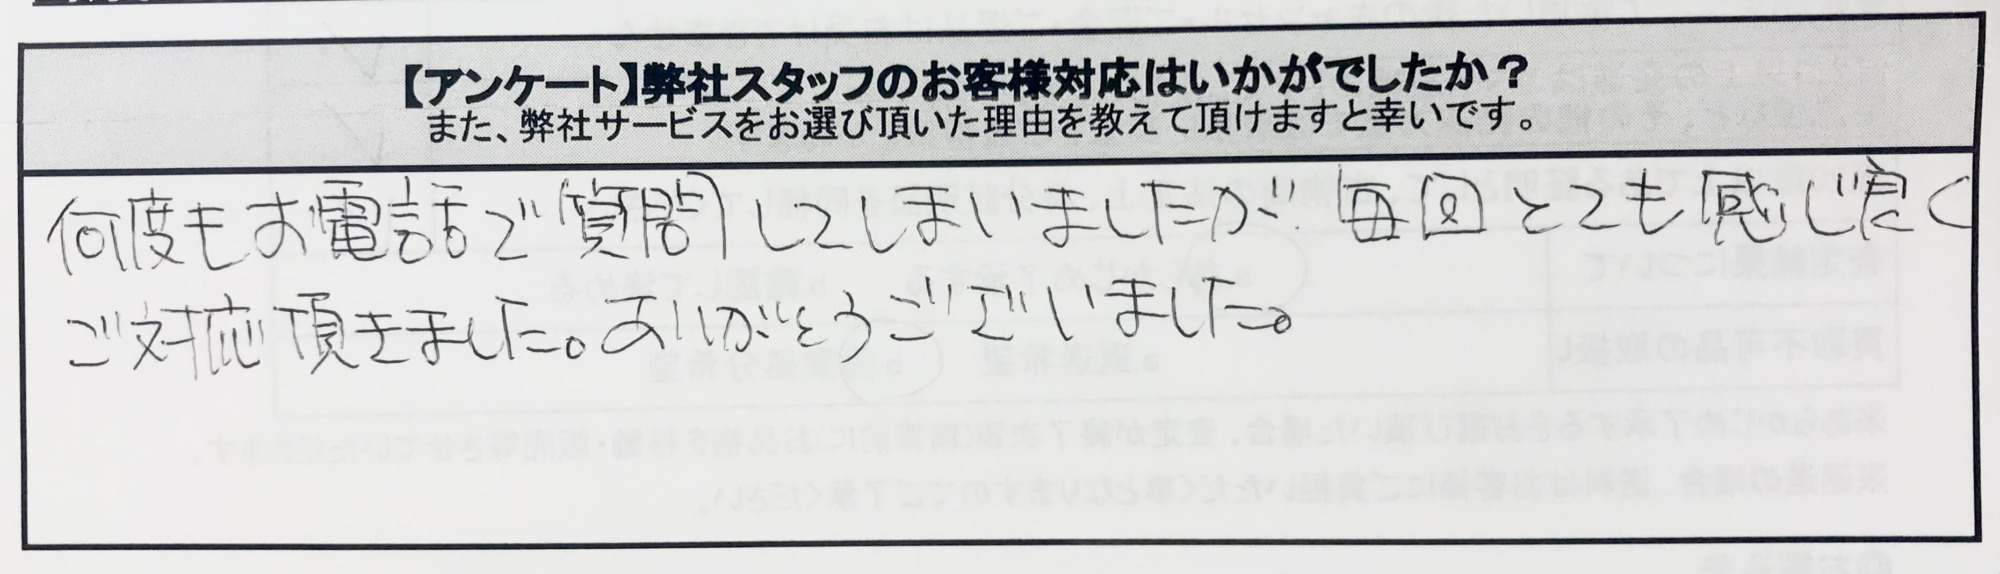 【アンケート】弊社スタッフのお客様対応はいかがでしたか？
また、弊社サービスをお選び頂いた理由を教えて頂けますと幸いです。
何度もお電話で質問してしまいましたが、毎回とても感じ良く
ご対応頂きました。ありがとうございました。